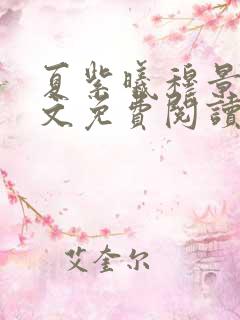 夏紫曦穆景
文免費閱讀
艾奎尔